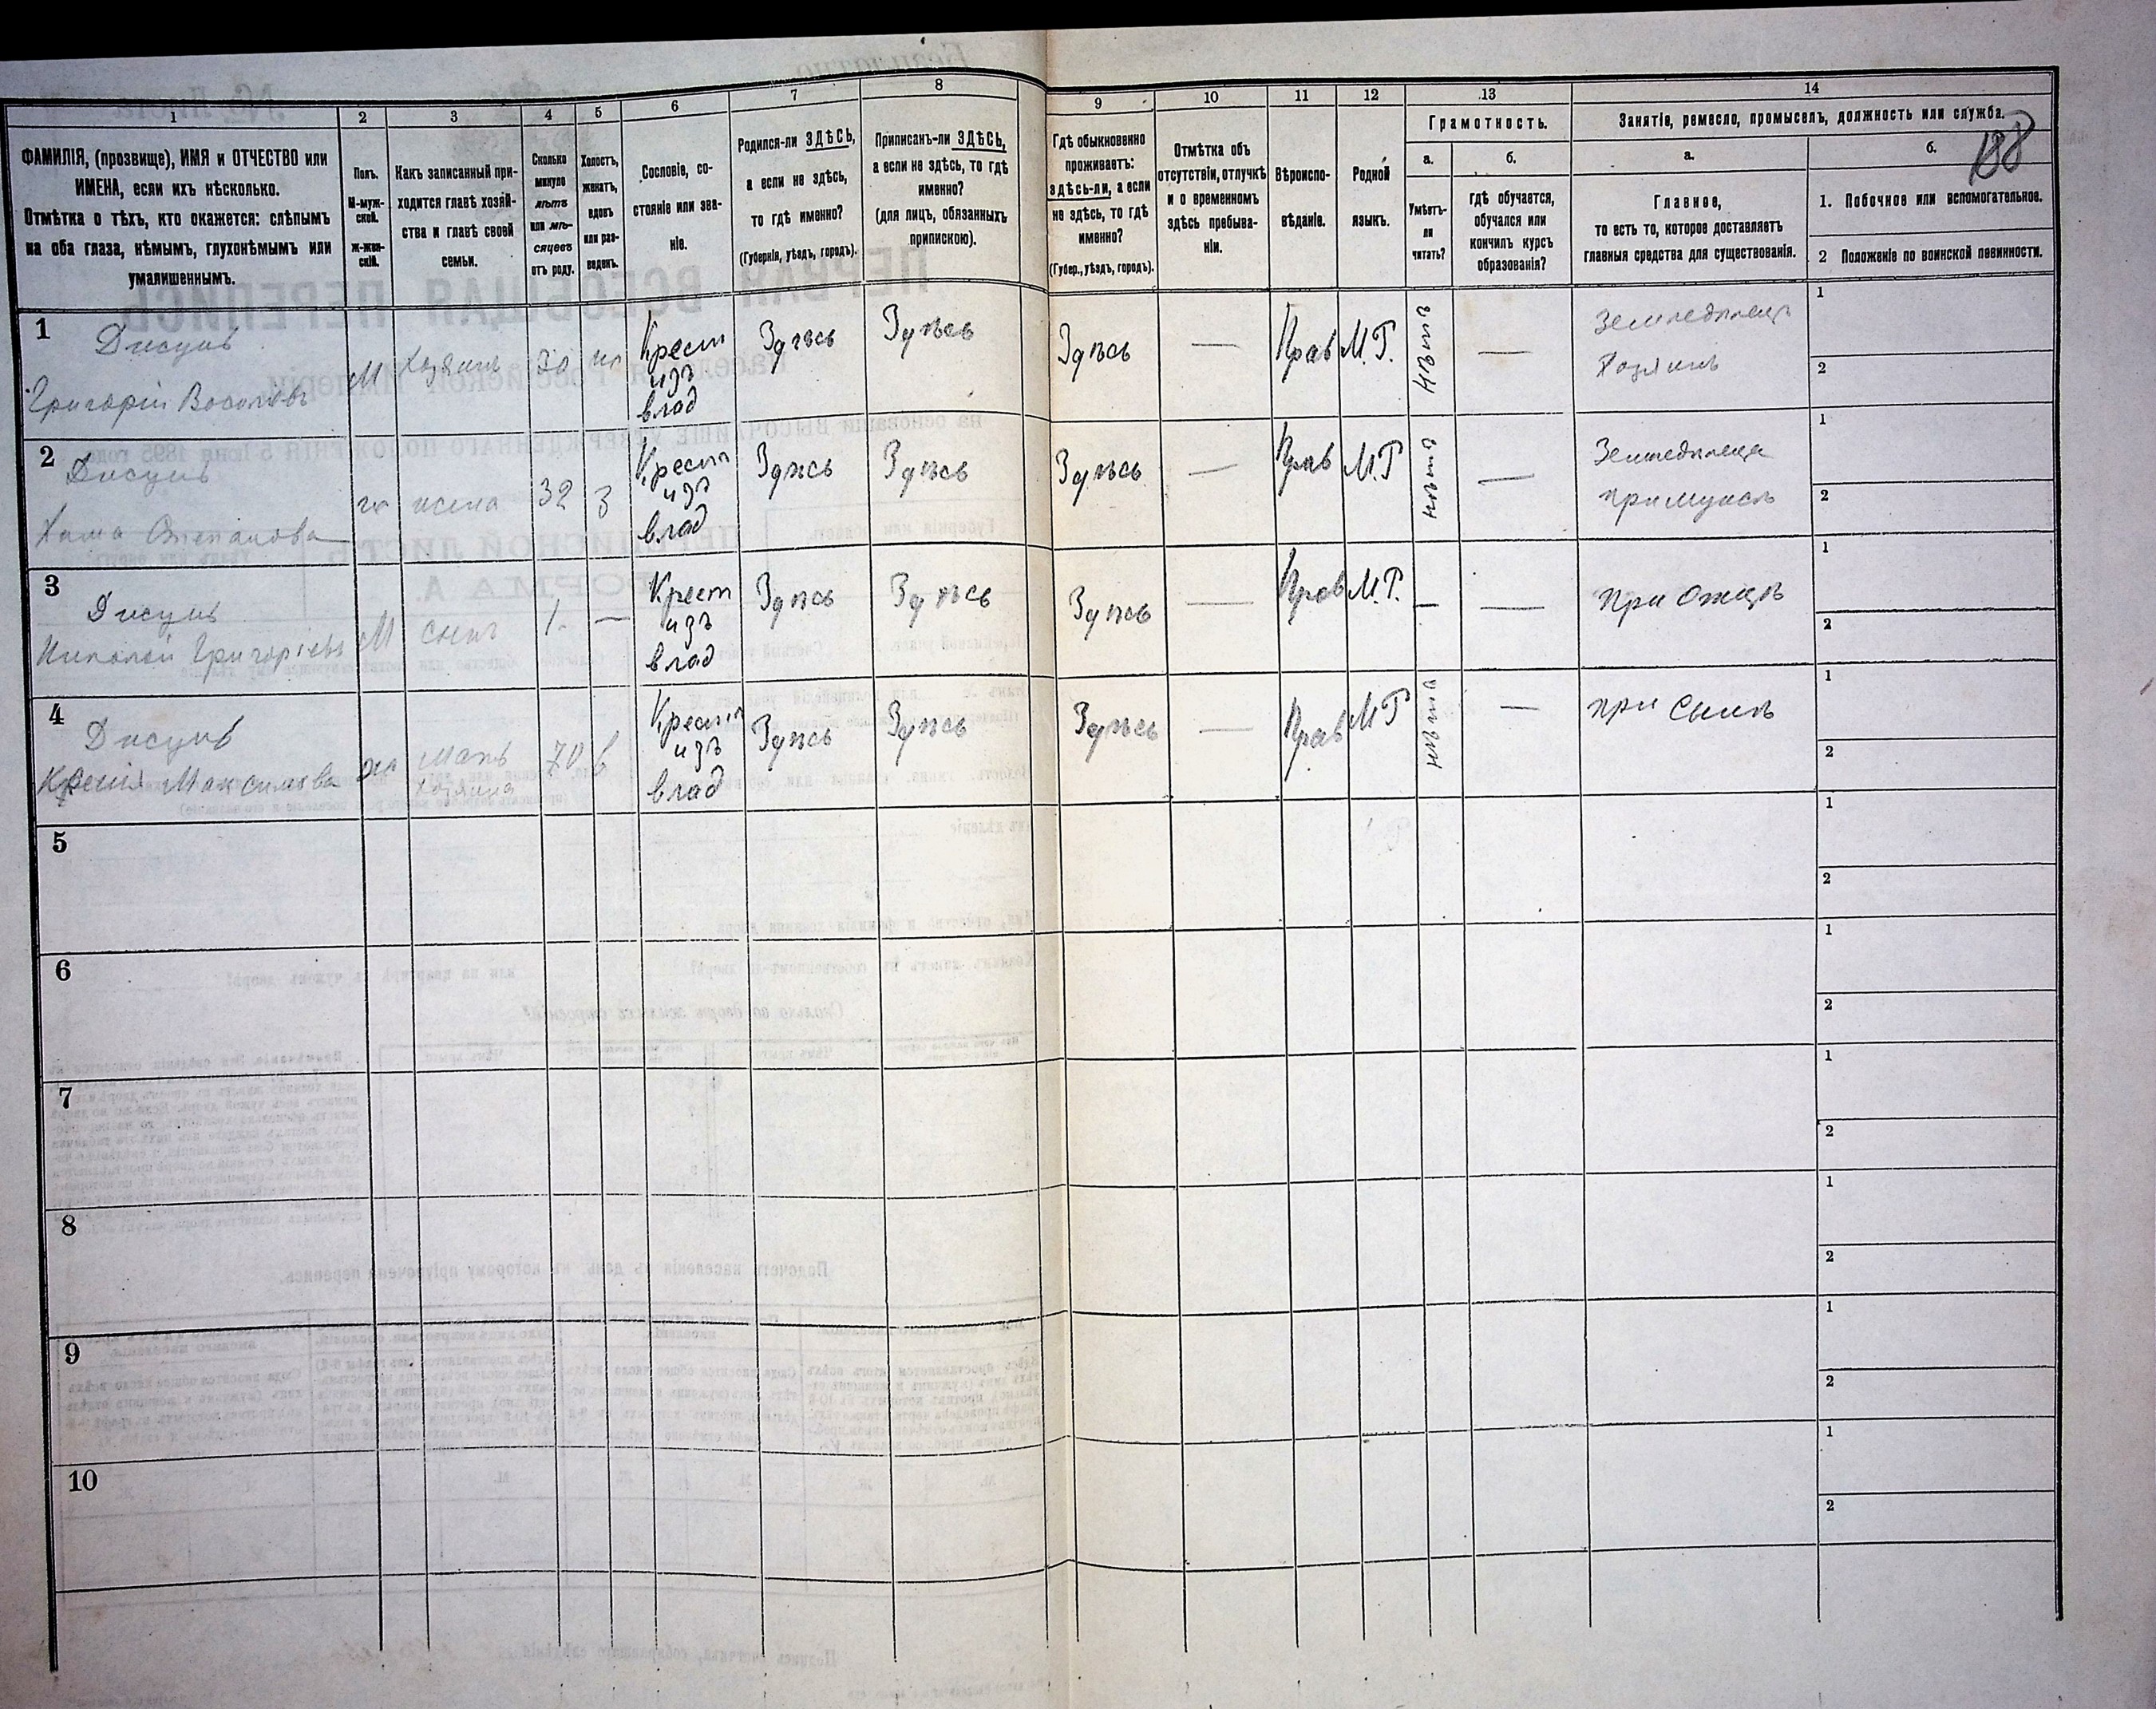 1 2 3 4 5 6 7 8 9 10 11 12 13 14
ФАМИЛІЯ, (прозвище), ИМЯ и ОТЧЕСТВО или
ИМЕНА, если ихъ нѣсколько.
Отмѣтка о тѣхъ, кто окажется: слѣпымъ
на оба глаза, нѣмымъ, глухонѣмымъ или
умалишеннымъ.
Полъ.
М-муж-
ской.
Ж-жен-
скій.
Какъ записанный при-
ходится главѣ хозяй-
ства и главѣ своей
семьи.
Сколько
минуло
лѣтъ
или мѣ-
сяцевъ
отъ роду.
Холостъ,
женатъ,
вдовъ
или раз-
веденъ.
Сословіе, со-
стояніе или зва-
ніе.
Родился-ли ЗДѢСЬ,
а если не здѣсь,
то гдѣ именно?
(Губернія, уѣздъ, городъ).
Приписанъ-ли ЗДѢСЬ,
а если не здѣсь, то гдѣ
именно?
(для лицъ, обязанныхъ
припискою).
Гдѣ обыкновенно
проживаетъ:
здѣсь-ли, а если
не здѣсь, то гдѣ
именно?
(Губер., уѣздъ, городъ).
Отмѣтка объ
отсутствіи, отлучкѣ
и о временномъ
здѣсь пребыва-
ніи.
Вѣроиспо-
вѣданіе.
Родной
языкъ.
Грамотность.
а.
Умѣетъ-
ли
читать?
б.
гдѣ обучается,
обучался или
кончилъ курсъ
образованія?
Занятіе, ремесло, промыселъ, должность или служба.
188
а.
Главное,
то есть то, которое доставляетъ
главныя средства для существованія.
б.
1. Побочное или вспомогательное.
2 Положеніе по воинской повинности.
1
Григорій
М
Хозяинъ
30
Крест
изъ
влад
Здѣсь
Здѣсь
Здѣсь
—
Прав
М.Р.
нѣтъ
—
Земледѣлецъ
Хозяинъ
1
2
2
Степанова
ж
жена
32
З
Крест
изъ
влад
Здѣсь
Здѣсь
Здѣсь
—
Прав
М.Р
нѣтъ
—
при мужѣ
1
2
3
Николай Григорьевъ
М
сынъ
1.
—
Крест
изъ
влад
Здѣсь
Здѣсь
Здѣсь
—
Прав
М.Р.
—
—
при Отцѣ
1
2
4
Максимова
ж
мать
хозяина
70
в
Крест
изъ
влад
Здѣсь
Здѣсь
Здѣсь
—
Прав
МР
нѣтъ
—
при Сынѣ
1
2
5
1
2
6
1
2
7
1
2
8
1
2
9
1
2
10
1
2